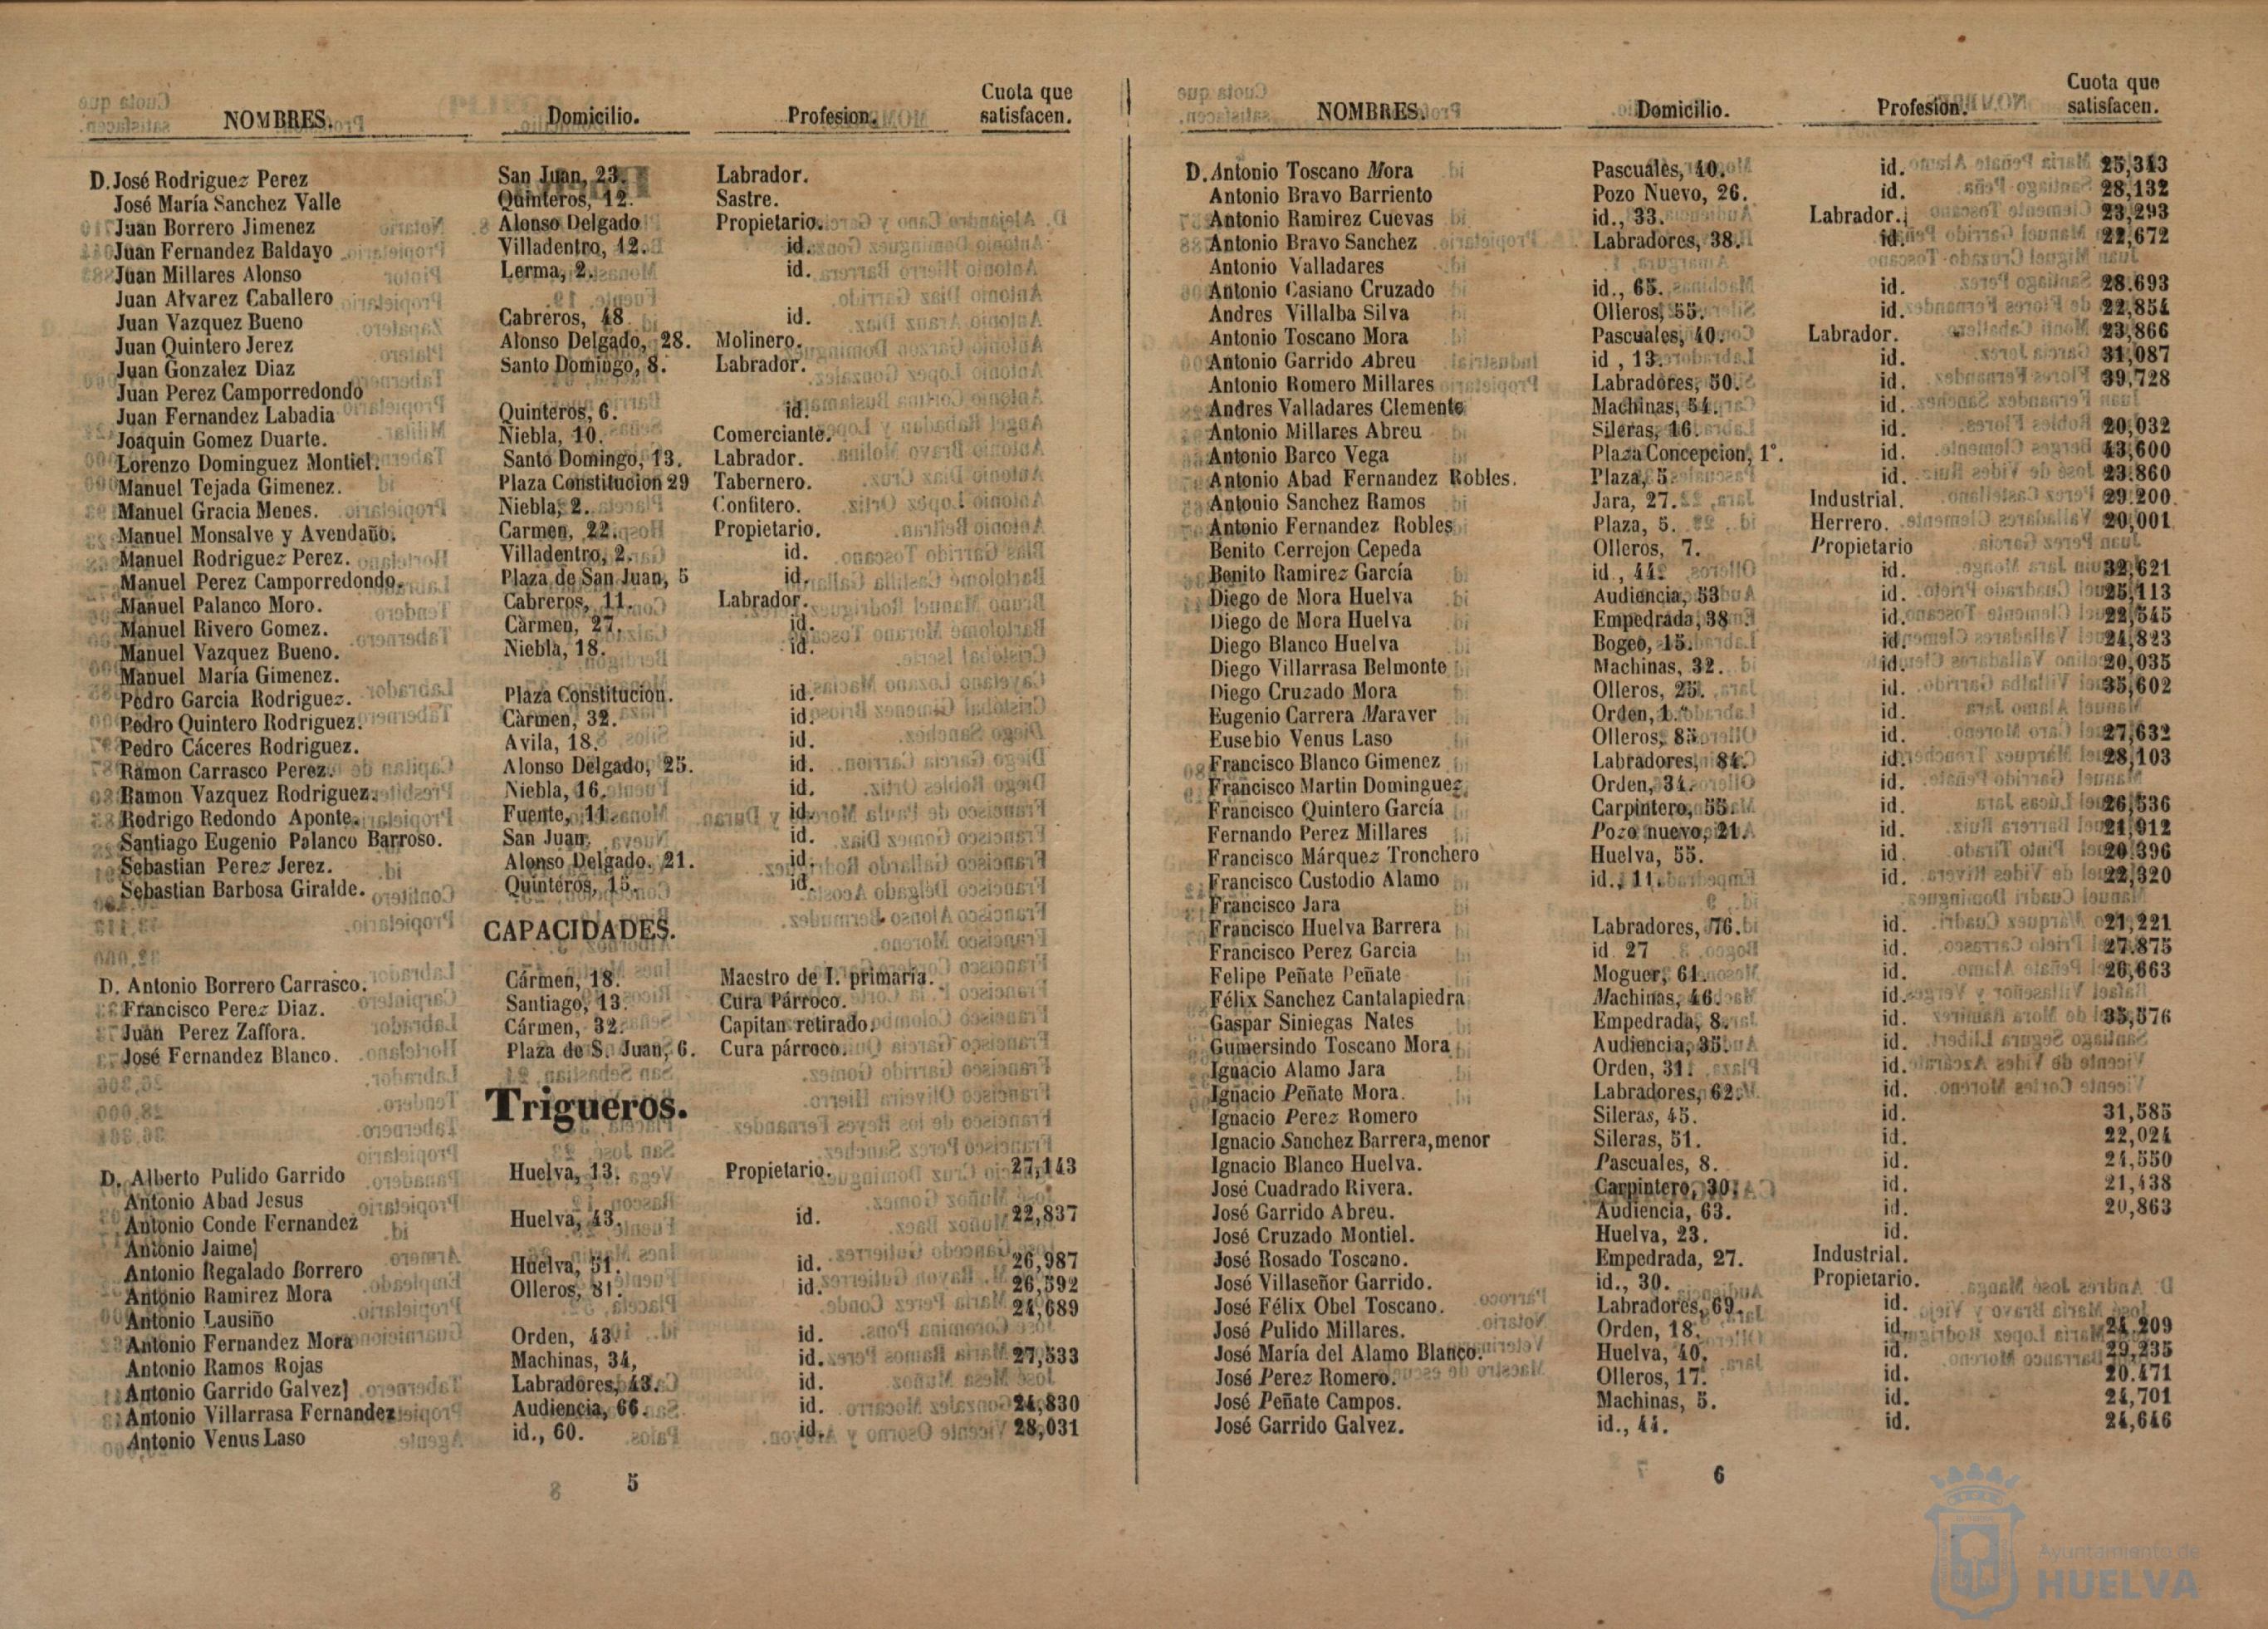 NOMBRES. Domicilio. Profesion. Cuota que satisfacen.
D. José Rodriguez Perez San Juan, 23. Labrador.
José María Sanchez Valle Quinteros, 12. Sastre.
Juan Borrero Jimenez Alonso Delgado Propietario.
Juan Fernandez Baldayo Villadentro, 12. id.
Juan Millares Alonso Lerma, 2. id.
Juan Alvarez Caballero
Juan Vazquez Bueno Cabreros, 48 id.
Juan Quintero Jerez Alonso Delgado, 28. Molinero.
Juan Gonzalez Diaz Santo Domingo, 8. Labrador.
Juan Perez Camporredondo
Juan Fernandez Labadia Quinteros, 6. id.
Joaquin Gomez Duarte. Niebla, 10. Comerciante.
Lorenzo Dominguez Montiel. Santo Domingo, 13. Labrador.
Manuel Tejada Gimenez. Plaza Constitucion 29 Tabernero.
Manuel Gracia Menes. Niebla, 2. Confitero.
Manuel Monsalve y Avendaño. Carmen, 22. Propietario.
Manuel Rodriguez Perez. Villadentro, 2. id.
Manuel Perez Camporredondo. Plaza de San Juan, 5 id.
Manuel Palanco Moro. Cabreros, 11. Labrador.
Manuel Rivero Gomez. Cármen, 27. id.
Manuel Vazquez Bueno. Niebla, 18. id.
Manuel María Gimenez.
Pedro Garcia Rodriguez. Plaza Constitucion. id.
Pedro Quintero Rodriguez. Cármen, 32. id.
Pedro Cáceres Rodriguez. Avila, 18. id.
Ramon Carrasco Perez. Alonso Delgado, 25. id.
Ramon Vazquez Rodriguez. Niebla, 16. id.
Rodrigo Redondo Aponte. Fuente, 11. id.
Santiago Eugenio Palanco Barroso. San Juan. id.
Sebastian Perez Jerez. Alonso Delgado. 21. id.
Sebastian Barbosa Giralde. Quinteros, 15. id.
CAPACIDADES.
D. Antonio Borrero Carrasco. Cármen, 18. Maestro de I. primaria.
Francisco Perez Diaz. Santiago, 13. Cura Párroco.
Juan Perez Zaffora. Cármen, 32. Capitan retirado.
José Fernandez Blanco. Plaza de S. Juan, 6. Cura párroco.
Trigueros.
D. Alberto Pulido Garrido Huelva, 13. Propietario. 27,143
Antonio Abad Jesus
Antonio Conde Fernandez Huelva, 43. id. 22,837
Antonio Jaime
Antonio Regalado Borrero Huelva, 51. id. 26,987
Antonio Ramirez Mora Olleros, 81. id. 26,592
Antonio Lausiño 24,689
Antonio Fernandez Mora Orden, 43 id.
Antonio Ramos Rojas Machinas, 34, id. 27,533
Antonio Garrido Galvez Labradores, 43. id.
Antonio Villarrasa Fernandez Audiencia, 66. id. 24,830
Antonio Venus Laso id., 60. id. 28,031
5
NOMBRES. Domicilio. Profesion. Cuota que satisfacen.
D. Antonio Toscano Mora Pascuales, 40. id. 25,343
Antonio Bravo Barriento Pozo Nuevo, 26. id. 28,132
Antonio Ramirez Cuevas id., 33. Labrador. 23,293
Antonio Bravo Sanchez Labradores, 38. id. 22,672
Antonio Valladares
Antonio Casiano Cruzado id., 65. id. 28.693
Andres Villalba Silva Olleros, 55. id. 22,854
Antonio Toscano Mora Pascuales, 40. Labrador. 23,866
Antonio Garrido Abreu id , 13. id. 31,087
Antonio Romero Millares Labradores, 50. id. 39,728
Andres Valladares Clemente Machinas, 54. id.
Antonio Millares Abreu Sileras, 16. id. 20,032
Antonio Barco Vega Plaza Concepcion, 1°. id. 43,600
Antonio Abad Fernandez Robles. Plaza, 5. id. 23.860
Antonio Sanchez Ramos Jara, 27. Industrial. 29.200
Antonio Fernandez Robles Plaza, 5. Herrero. 20,001
Benito Cerrejon Cepeda Olleros, 7. Propietario
Benito Ramirez García id., 44 id. 32,621
Diego de Mora Huelva Audiencia, 53 id. 25,113
Diego de Mora Huelva Empedrada, 38 id. 22,545
Diego Blanco Huelva Bogeo, 15. id. 24,823
Diego Villarrasa Belmonte Machinas, 32. id. 20,035
Diego Cruzado Mora Olleros, 25. id. 35,602
Eugenio Carrera Maraver Orden, 1. id.
Eusebio Venus Laso Olleros, 85 id. 27,632
Francisco Blanco Gimenez Labradores, 84. id. 28,103
Francisco Martin Dominguez Orden, 34. id.
Francisco Quintero García Carpintero, 55. id. 26,536
Fernando Perez Millares Pozo nuevo, 21. id. 24,912
Francisco Márquez Tronchero Huelva, 55. id. 20,396
Francisco Custodio Alamo id., 11. id. 22,320
Francisco Jara
Francisco Huelva Barrera Labradores, 76. id. 21,221
Francisco Perez Garcia id 27 id. 27.875
Felipe Peñate Peñate Moguer, 61. id. 26,663
Félix Sanchez Cantalapiedra Machinas, 46. id.
Gaspar Siniegas Nates Empedrada, 8. id. 35,576
Gumersindo Toscano Mora Audiencia, 35. id.
Ignacio Alamo Jara Orden, 31. id.
Ignacio Peñate Mora. Labradores, 62. id.
Ignacio Perez Romero Sileras, 45. id. 31,585
Ignacio Sanchez Barrera, menor Sileras, 51. id. 22,024
Ignacio Blanco Huelva. Pascuales, 8. id. 24,550
José Cuadrado Rivera. Carpintero, 30. id. 21,438
José Garrido Abreu. Audiencia, 63. id. 20,863
José Cruzado Montiel. Huelva, 23. id.
José Rosado Toscano. Empedrada, 27. Industrial.
José Villaseñor Garrido. id., 30. Propietario.
José Félix Obel Toscano. Labradores, 69. id.
José Pulido Millares. Orden, 18. id. 24,209
José María del Alamo Blanco. Huelva, 40. id. 29,235
José Perez Romero. Olleros, 17. id. 20.471
José Peñate Campos. Machinas, 5. id. 24,701
José Garrido Galvez. id., 44. id. 24,646
6
Ayuntamiento de
HUELVA